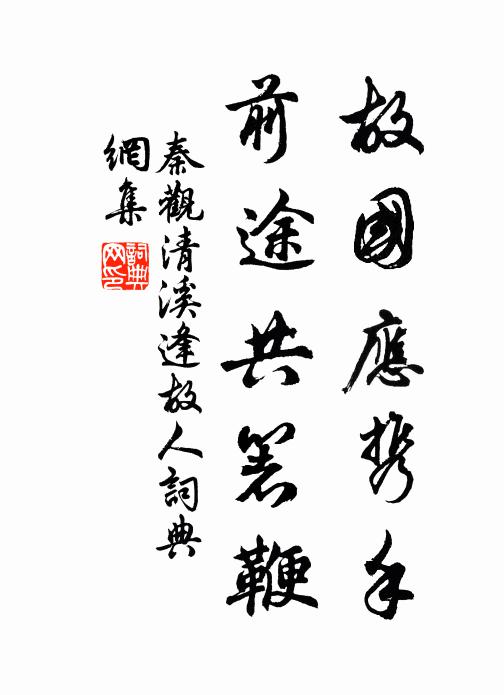 故國應携手
前途共著鞭
秦觀清溪逢故人詞典
網集
詞典網印